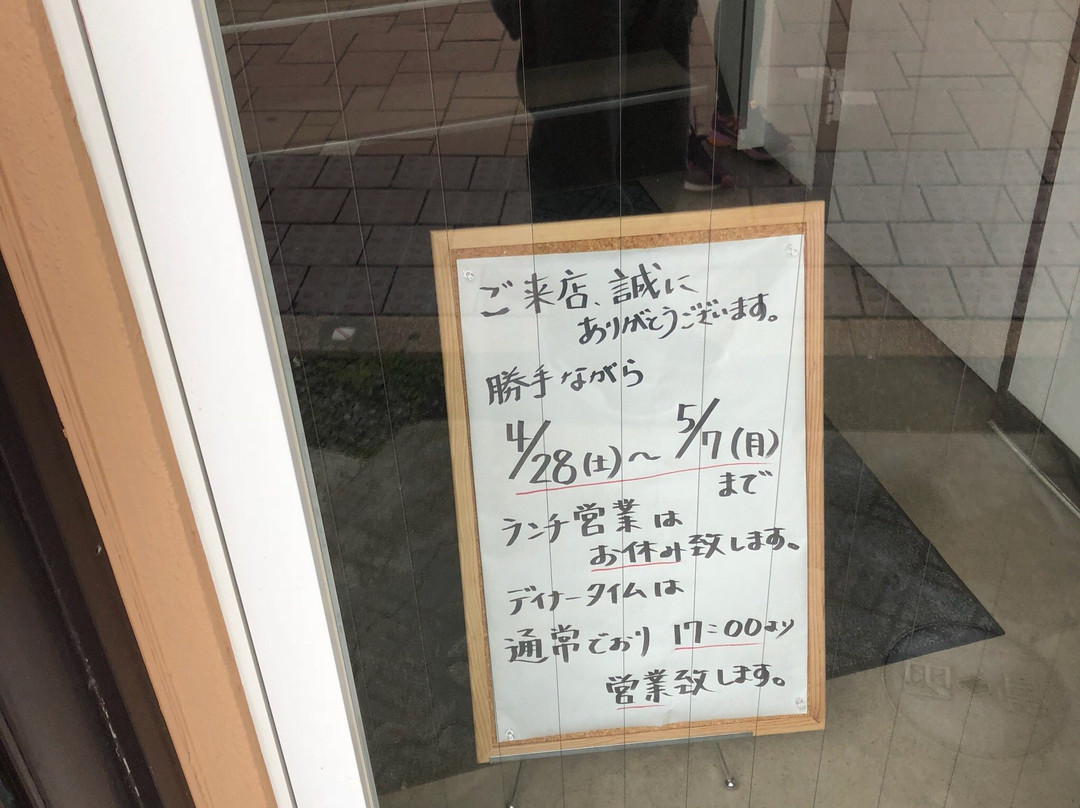 ご来店、誠に
ありがとうございます。
勝手ながら
4/28(土)～5/7(月)
まで
ランチ営業は
お休み致します。
ディナータイムは
通常どおり 17:00より
営業致します。